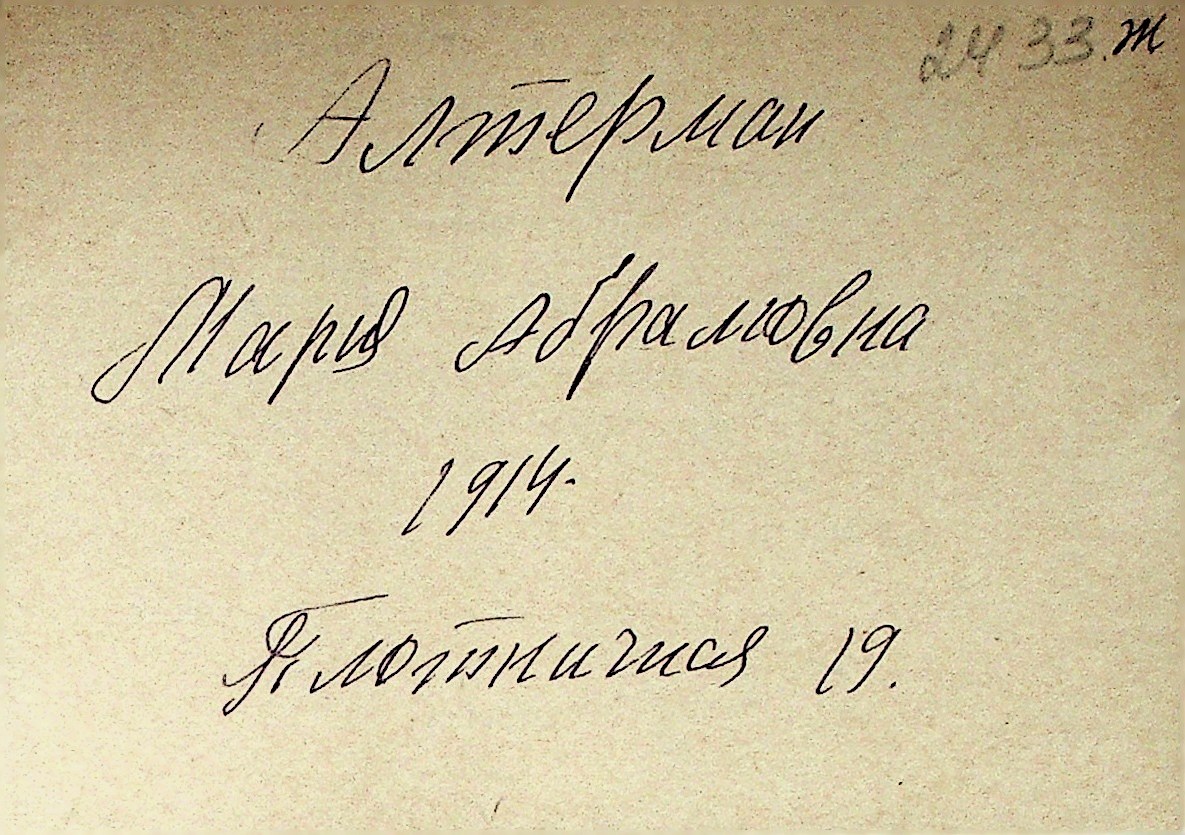 2433.ж
Алтерман
Мария Абрамовна
1914.
Плотничная 19.